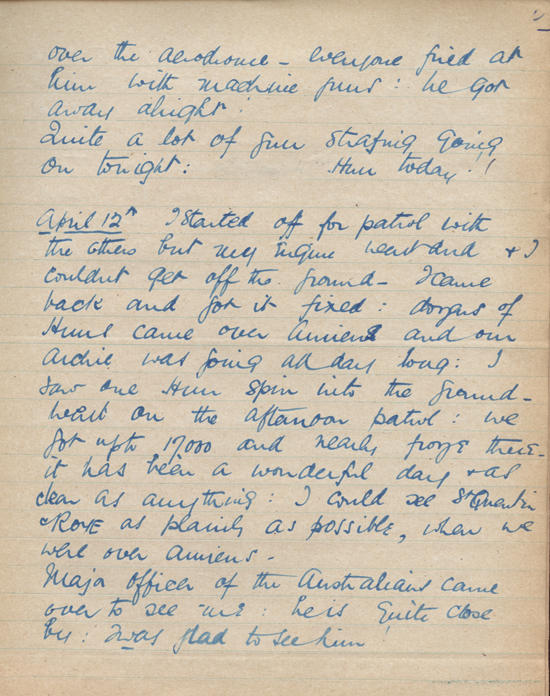 over the aerodrome - everyone fired at
him with machine guns: he got
away alright!
Quite a lot of gun strafing going
on tonight: Hun today!!
April 12th I started off for patrol with
the others but my engine went dud & I
couldnt get off the ground - I came
back and got it fixed: dozens of
Huns came over Amiens and our
archie was going all day long: I
saw one Hun spin into the ground -
went on the afternoon patrol: we
got upto 17,000 and nearly froze there -
it has been a wonderful day & as
clear as anything: I could see St Quentin
& ROYE as plainly as possible, when we
were over Amiens -
Major officer of the Australians came
over to see me: he is quite close
by: I was glad to see him!